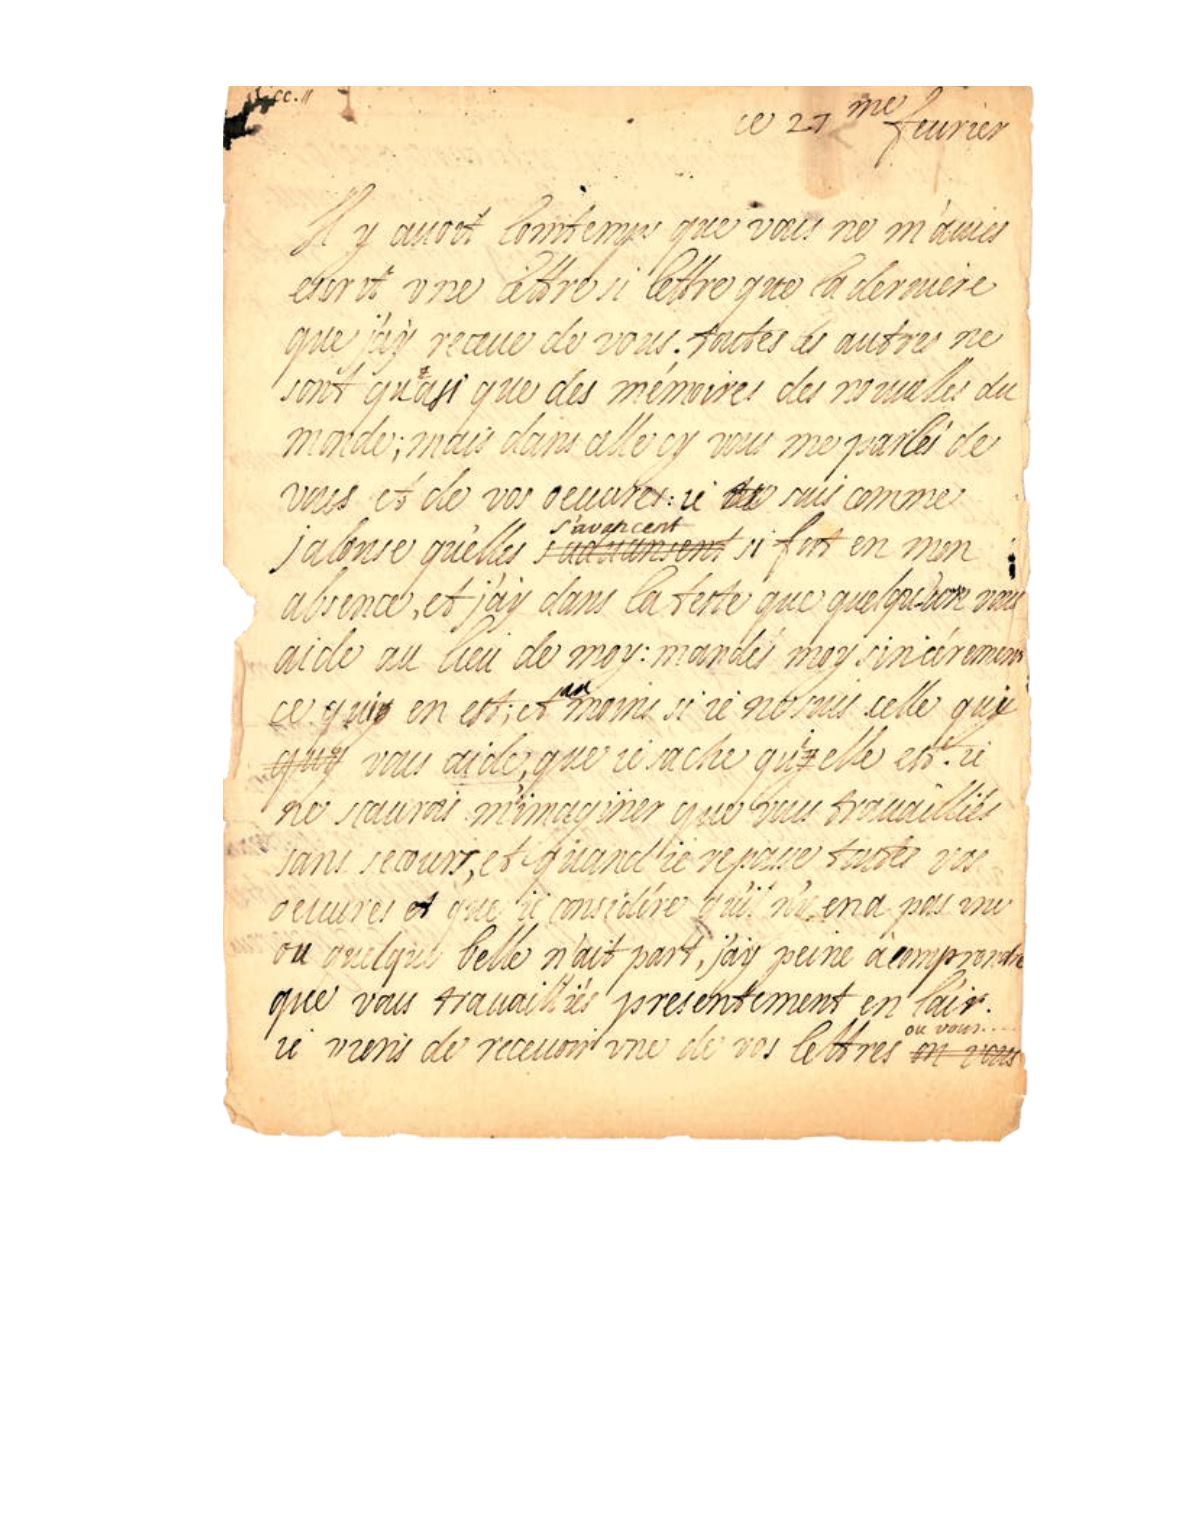 ce 27 me feurier
Il y auoit lomtemps que vous ne m'auiés
escrit vne lettre si lettre que la derniere
que j'ay receue de vous. toutes les autres ne
sont quasi que des mémoires des nouuelles du
monde; mais dans celle cy vous me parlés de
vous et de vos oeuures: ie suis comme
s'avancent
jalouse quelles s'aduansent si fort en mon
absence, et j'ay dans la teste que quelqu'une vous
aide au lieu de moy: mandés moy sincérement
ce qui en est; et au moins si ie ne suis celle qui
quy vous aide, que ie sache qui elle est. ie
ne scaurois m'imaginer que vous trauailliés
sans secours, et quand ie repasse toutes vos
oeuures et que ie considére qu'il n'y en a pas vne
ou quelque belle n'ait part, j'ay peine a comprendre
que vous trauailliés presentement en l'air.
ou vous....
ie viens de receuoir vne de vos lettres on vous